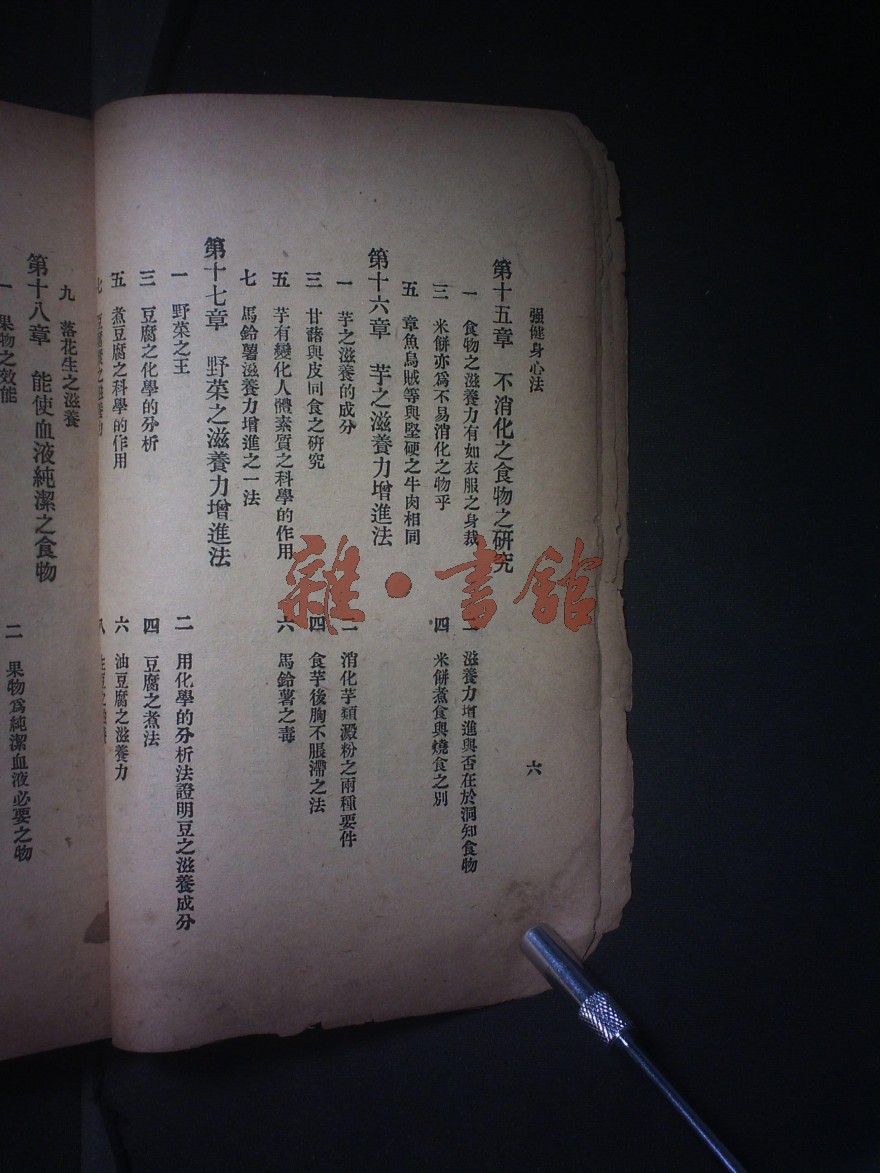 强健身心法
六
第十五章　不消化之食物之研究
一　食物之滋養力有如衣服之身裁
二　滋養力增進與否在於洞知食物
三　米餅亦爲不易消化之物乎
四　米餅煮食與燒食之別
五　章魚烏賊等與堅硬之牛肉相同
第十六章　芋之滋養力增進法
一　芋之滋養的成分
二　消化芋類澱粉之兩種要件
三　甘藷與皮同食之研究
四　食芋後胸不脹滯之法
五　芋有變化人體素質之科學的作用
六　馬鈴薯之毒
七　馬鈴薯滋養力增進之一法
第十七章　野菜之滋養力增進法
一　野菜之王
二　用化學的分析法證明豆之滋養成分
三　豆腐之化學的分析
四　豆腐之煮法
五　煮豆腐之科學的作用
六　油豆腐之滋養力
七　豆腐
八
九　落花生之滋養
第十八章　能使血液純潔之食物
一　果物之效能
二　果物爲純潔血液必要之物
雜·書館